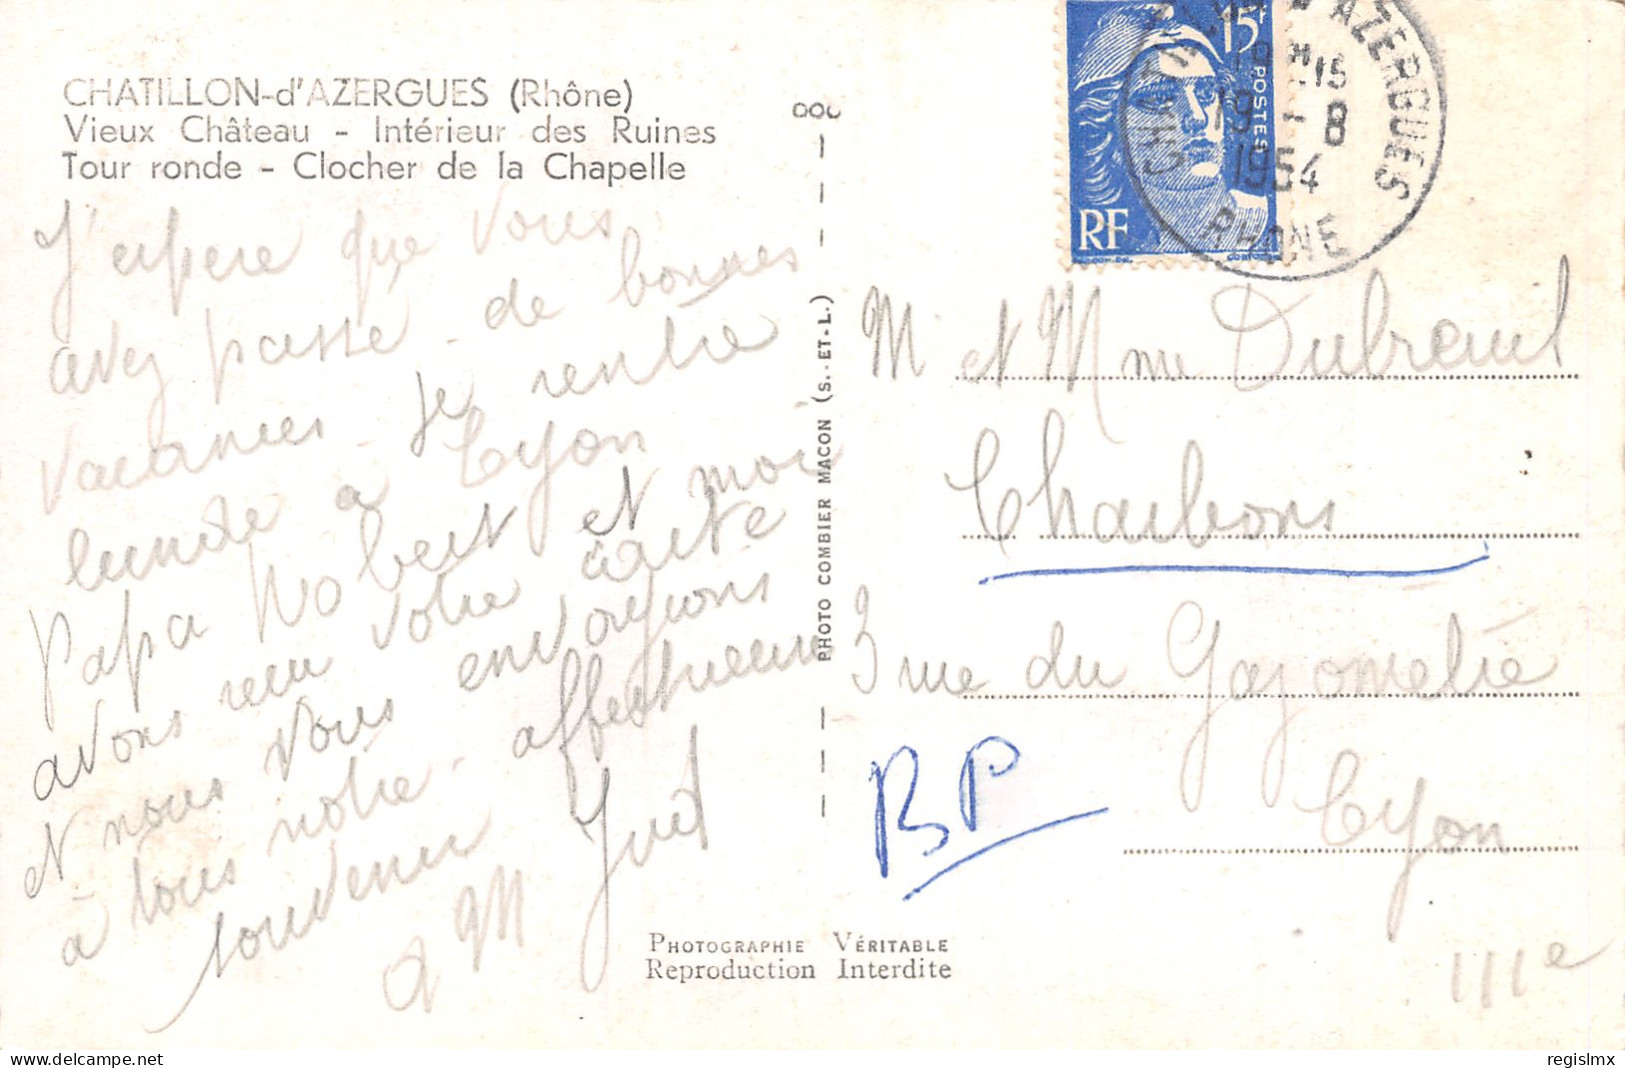 CHATILLON-d'AZERGUES (Rhône)
Vieux Château - Intérieur des Ruines
Tour ronde - Clocher de la Chapelle
J'espere que vous
avez passé de bonnes
vacances. Je rentre
lundi a Lyon
Papa Robert et moi
avons reçu votre carte
et nous vous envoyons
à tous notre affectueux
souvenir
M Juet
PHOTO COMBIER MACON (S.-ET-L.)
15F
POSTES
RF
CHATILLON D'AZERGUES
19 - 8
1954
RHONE
M et Mme Dubreuil
Charbons
3 rue du Gazometre
BP
Lyon
IIIe
PHOTOGRAPHIE VÉRITABLE
Reproduction Interdite
www.delcampe.net
regislmx